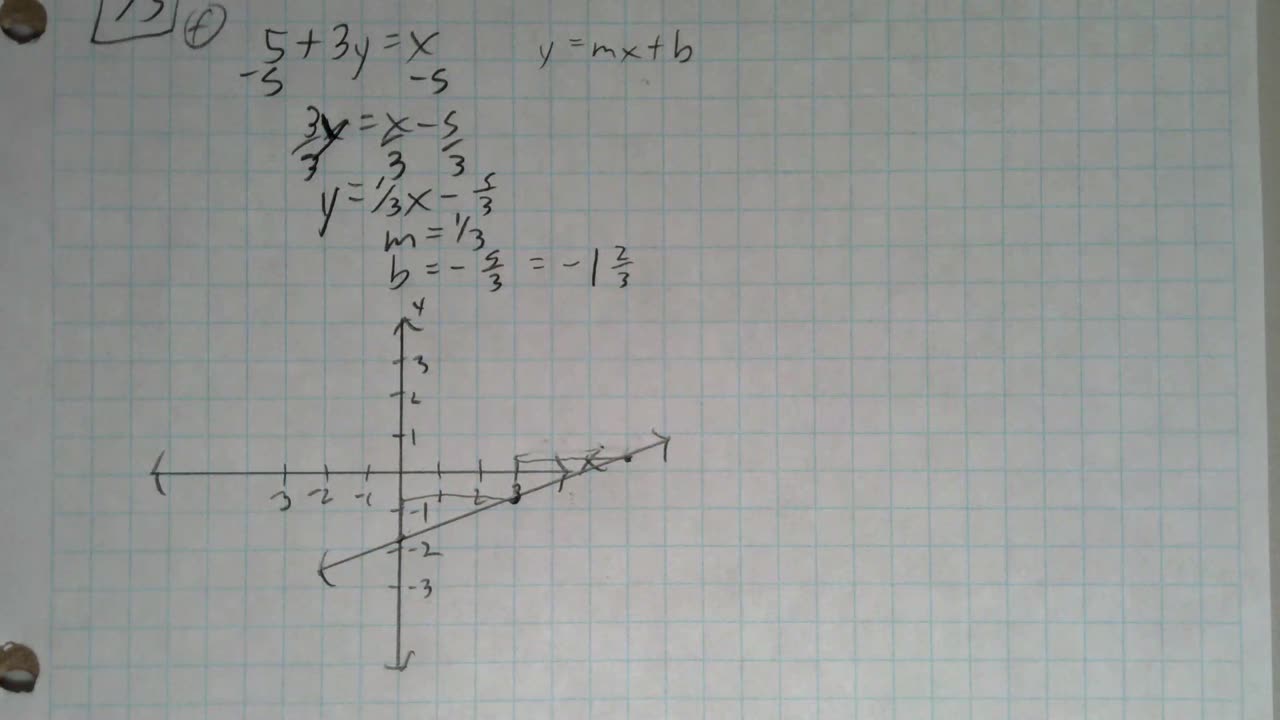 f
5 + 3y = x    y = mx + b
-5    -5
3y = x - 5
3    3    3
y = 1/3x - 5/3
m = 1/3
b = - 5/3 = -1 2/3
y
3
2
1
x
-3 -2 -1 1 2 3
-1
-2
-3